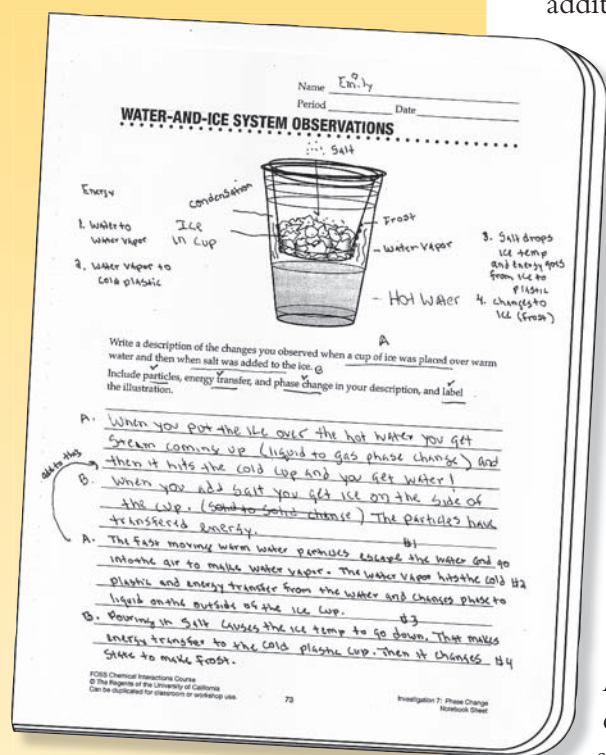 addit
Name Emily
Period Date
WATER-AND-ICE SYSTEM OBSERVATIONS
Salt
Energy
condensation
1. Water to
water vapor
Ice
in cup
Frost
Water Vapor
2. Water Vapor to
cold plastic
3. Salt drops
ice temp
and energy goes
from ice to
plastic
4. changes to
ice (frost)
Hot Water
A
Write a description of the changes you observed when a cup of ice was placed over warm
water and then when salt was added to the ice. B
Include particles, energy transfer, and phase change in your description, and label
the illustration.
add to this
A. When you put the ice over the hot water you get
steam coming up (liquid to gas phase change) and
then it hits the cold cup and you get water!
B. When you add salt you get ice on the side of
the cup. (solid to solid change) The particles have
transfered energy.
#1
A. The fast moving warm water particles escape the water and go
into the air to make water vapor. The water vapor hits the cold #2
plastic and energy transfer from the water and changes phase to
liquid on the outside of the ice cup.
#3
B. Pouring in salt causes the ice temp to go down. That makes
energy transfer to the cold plastic cup. Then it changes #4
state to make frost.
FOSS Chemical Interactions Course
© The Regents of the University of California
Can be duplicated for classroom or workshop use.
73
Investigation 7: Phase Change
Notebook Sheet